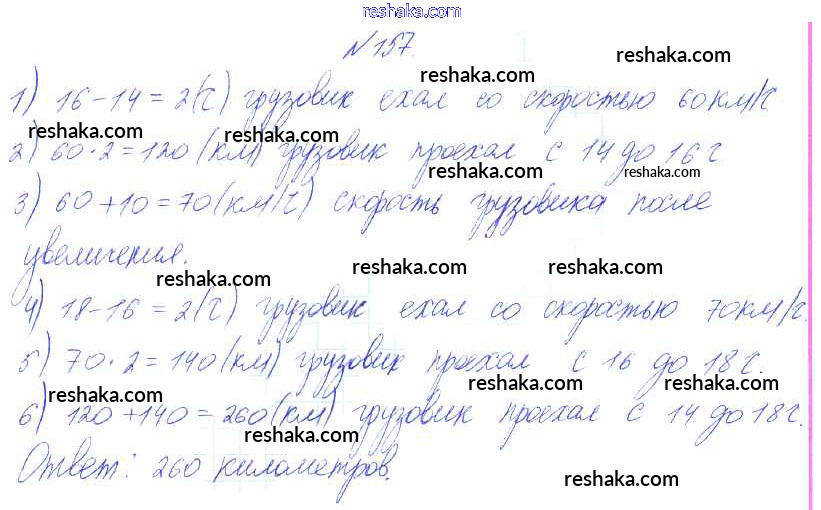 reshaka.com
№157.
reshaka.com
1) 16-14=2(ч) грузовик ехал со скоростью 60км/ч
reshaka.com reshaka.com reshaka.com
2) 60·2=120(км) грузовик проехал с 14 до 16ч
reshaka.com reshaka.com
3) 60+10=70(км/ч) скорость грузовика после
увеличения.
reshaka.com reshaka.com reshaka.com
4) 18-16=2(ч) грузовик ехал со скоростью 70км/ч.
reshaka.com reshaka.com
5) 70·2=140(км) грузовик проехал с 16 до 18ч.
reshaka.com reshaka.com reshaka.com
6) 120+140=260(км) грузовик проехал с 14 до 18ч.
reshaka.com
Ответ: 260 километров.
reshaka.com